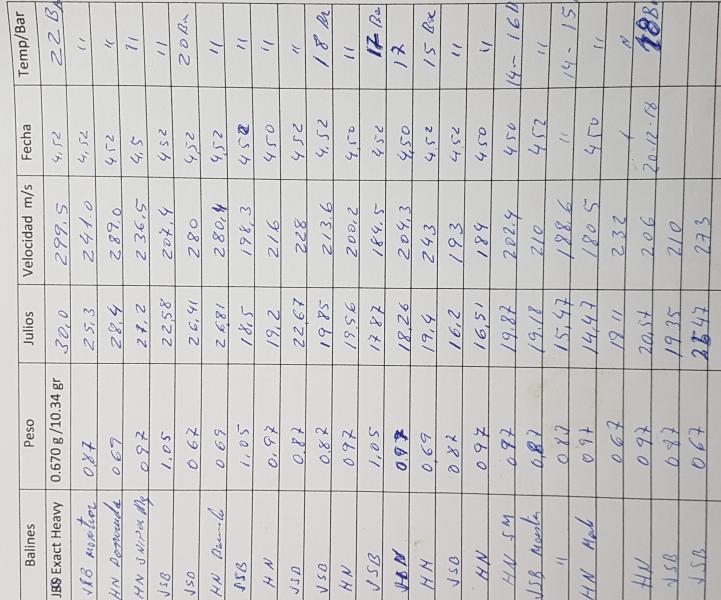 Balines Peso Julios Velocidad m/s Fecha Temp/Bar
JBS Exact Heavy 0.670 g /10.34 gr 30,0 299,5 4,52 22 Bar
JSB Monster 0,87 25,3 241.0 4,52 "
HN 069 28,4 289,0 452 "
HN 0,97 27,2 236,5 4,5 "
JSB 1,05 22,58 207,4 452 "
JSB 0,67 26,41 280 4,52 20 Bar
HN 069 2681 280,4 4,52 "
JSB 1,05 18,5 198,3 452 "
HN 0,97 19,2 216 450 "
JSB 0,87 22,67 228 452 "
JSB 0,87 1985 213,6 4,52 18 Bar
HN 097 19,56 200,2 4,50 "
JSB 1,05 17,87 184,5 452 17 Bar
HN 0,97 18,26 204,3 4,50 17
HN 0,69 19,4 243 4,52 15 Bar
JSB 087 16,2 193 4,52 "
HN 097 16,51 184 450 "
HN SM 097 19,87 202,4 450 14-16B
JSB 0,87 19,18 210 452 "
" 087 15,47 188,6 " 14-15
HN 097 14,47 180,5 450 "
067 18,11 232
HN 097 20,57 206 20-12-18 18Bar
JSB 087 19,35 210
JSB 0,67 47 273